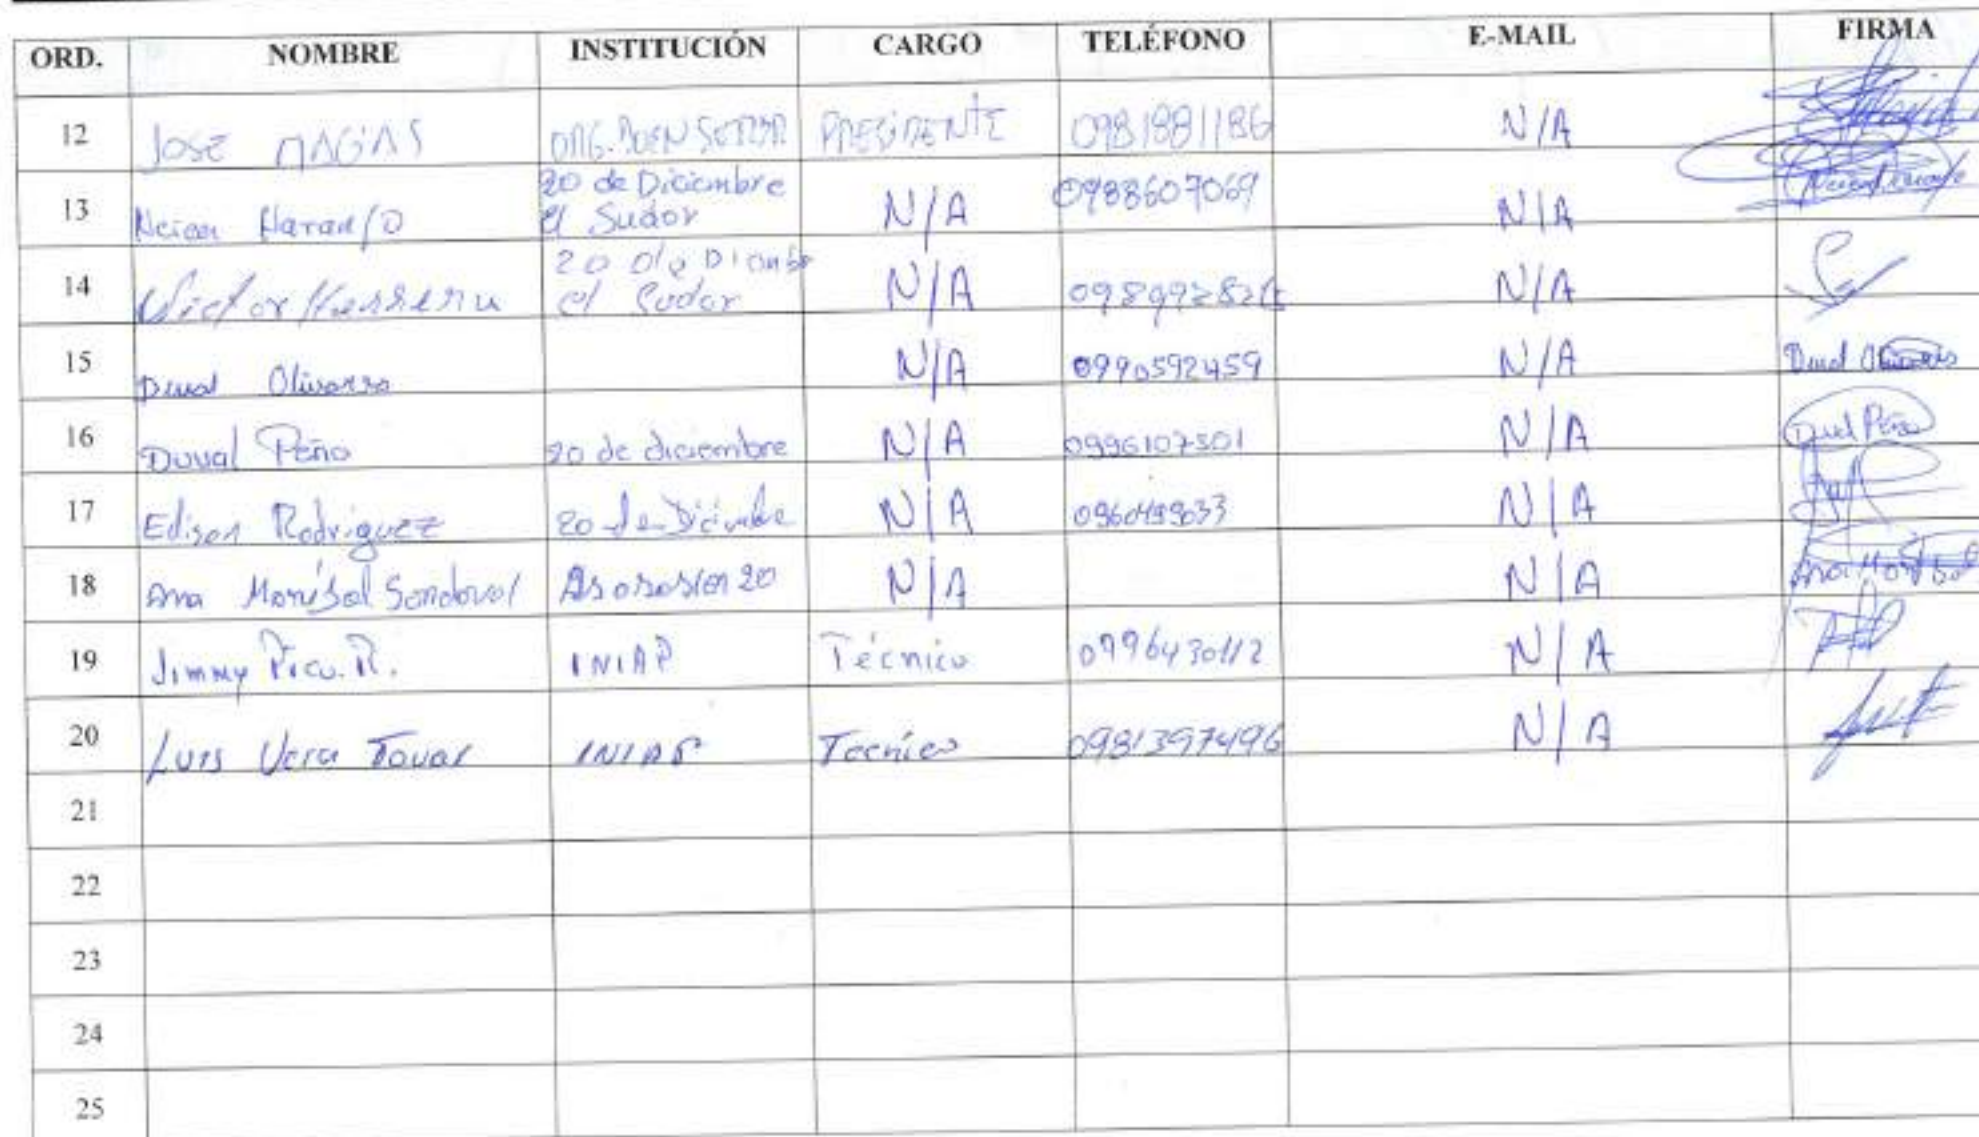 ORD. NOMBRE INSTITUCIÓN CARGO TELÉFONO E-MAIL FIRMA
12 JOSE MACIAS ORG. BUEN SEMBR PRESIDENTE 0981881186 N/A
13 Neicer Naranjo 20 de Diciembre el Sudor N/A 0988607069 N/A
14 Victor Herrera 20 de Diciembre el Sudor N/A N/A
15 Duval Olivarra N/A 0990592459 N/A Duval
16 Duval Peña 20 de diciembre N/A 0996107501 N/A Duval Peña
17 Edison Rodriguez 20 de Diciembre N/A 0960499033 N/A
18 Ana Marisol Sandoval Asosasion 20 N/A N/A Ana
19 Jimmy Pico. R. INIAP Técnico 0996430112 N/A
20 Luis Vera Tovar INIAP Tecnico 0981397496 N/A
21
22
23
24
25